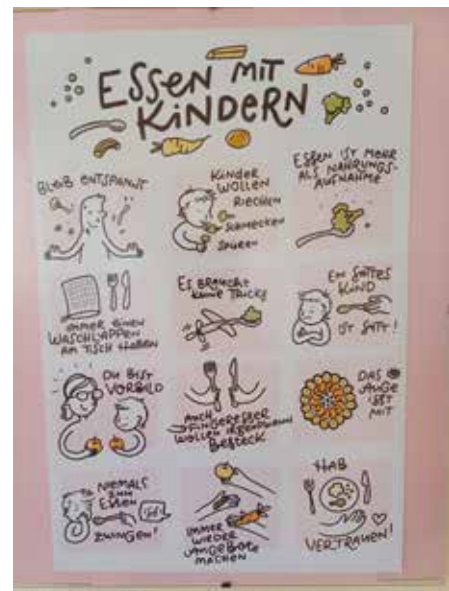 ESSEN MIT
KINDERN
BLEIB ENTSPANNT
KINDER
WOLLEN
RIECHEN
SCHMECKEN
SPÜREN
ESSEN IST MEHR
ALS NAHRUNGS-
AUFNAHME
IMMER EINEN
WASCHLAPPEN
AM TISCH HABEN
ES BRAUCHT
KEINE TRICKS
EIN SATTES
KIND
IST SATT!
DU BIST
VORBILD
AUCH
FINGERESSER
WOLLEN IRGENDWANN
BESTECK
DAS
AUGE
ISST
MIT
NIEMALS
ZUM
ESSEN
ZWINGEN!
IMMER
WIEDER
ANGEBOTE
MACHEN
HAB
VERTRAUEN!